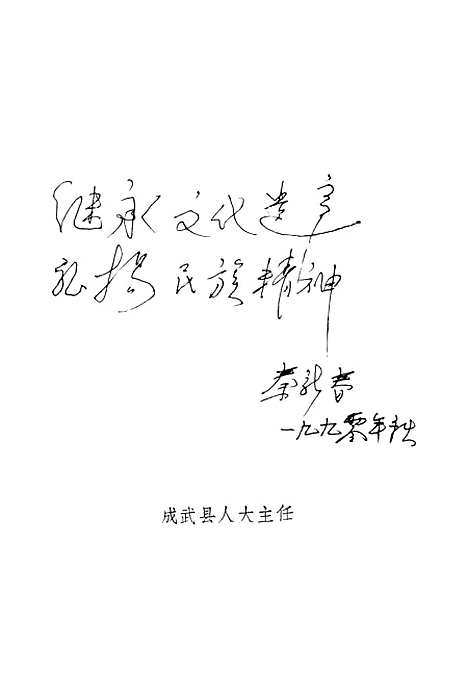 继承文化遗产
弘扬民族精神
秦新春
一九九零年秋
成武县人大主任